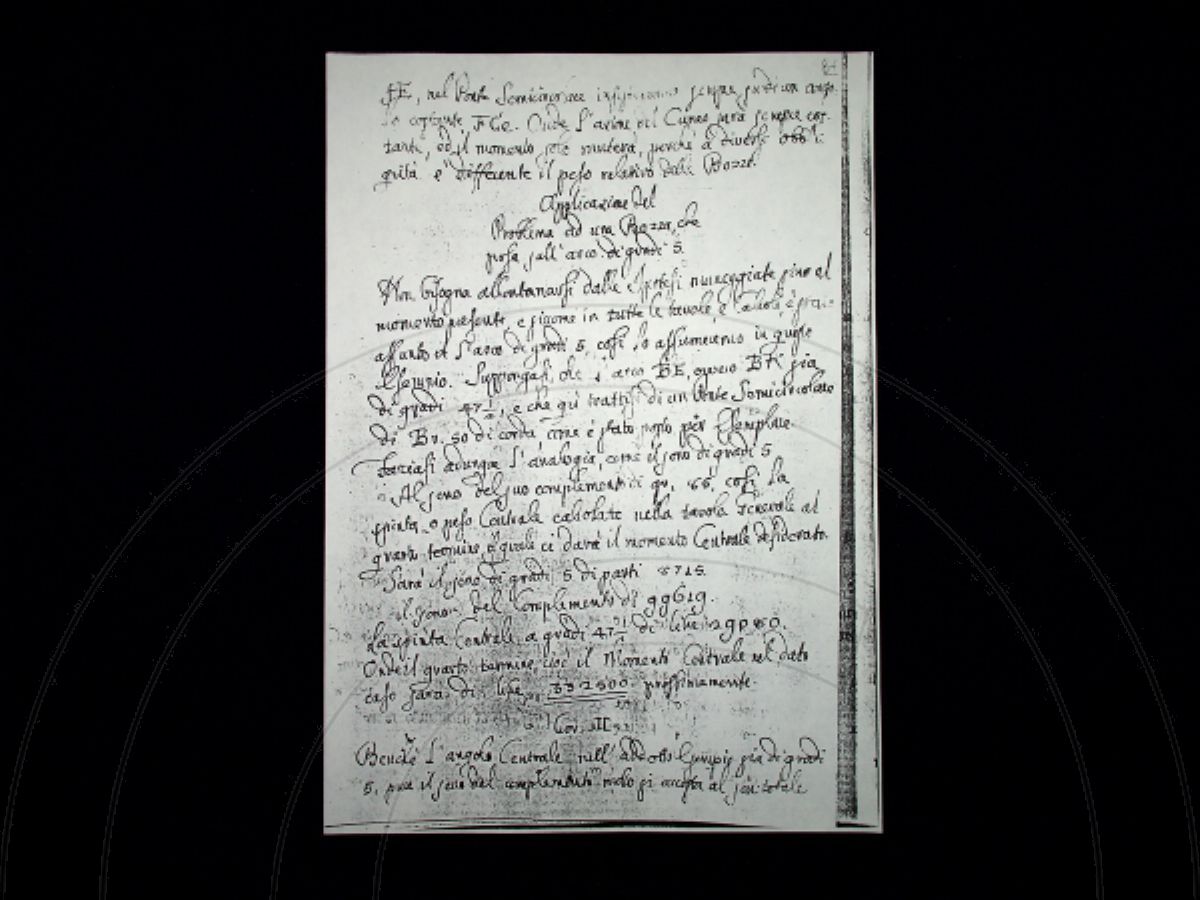 FE, nel Ponte Semicircolare insisteranno sempre sud'un ango-
lo costante FCe. Onde l'azione del Cuneo sarà sempre cos-
tante, ed il momento solo muterà, perchè a diverse obbli-
quità è differente il peso relativo delle Bozze.
Applicazione del
Problema ad una Bozza, che
posa sull'arco di gradi 5.
Non bisogna allontanarsi dalle Ipotesi maneggiate sino al
momento presente, e siccome in tutte le tavole, e Calcoli, è sta-
assunto l'arco di gradi 5, così lo assumeremo in questo
Esempio. Suppongasi, che l'arco BE, ovvero BH sia
di gradi 47 1/2, e che qui trattisi di un Ponte Semicircolare
di Br. 50 di corda, come è stato posto per Esemplare.
Facciasi adunque l'analogia, come il seno di gradi 5
Al seno del suo complemento di gr. 85, così la
spinta, o peso Centrale calcolato nella tavola Generale al
quarto termine, il quale ci darà il momento Centrale desiderato.
Sarà il seno di gradi 5 di parti 8715.
il seno del Complemento di 99619.
La spinta Centrale a gradi 47 1/2 di libre
Onde il quarto termine, cioè il Momento Centrale nel dato
caso sarà di libre 332500 prossimamente.
Cor. II
Benchè l'angolo Centrale nell'addotto Esempio sia di gradi
5, pure il seno del complemento molto si accosta al seno totale